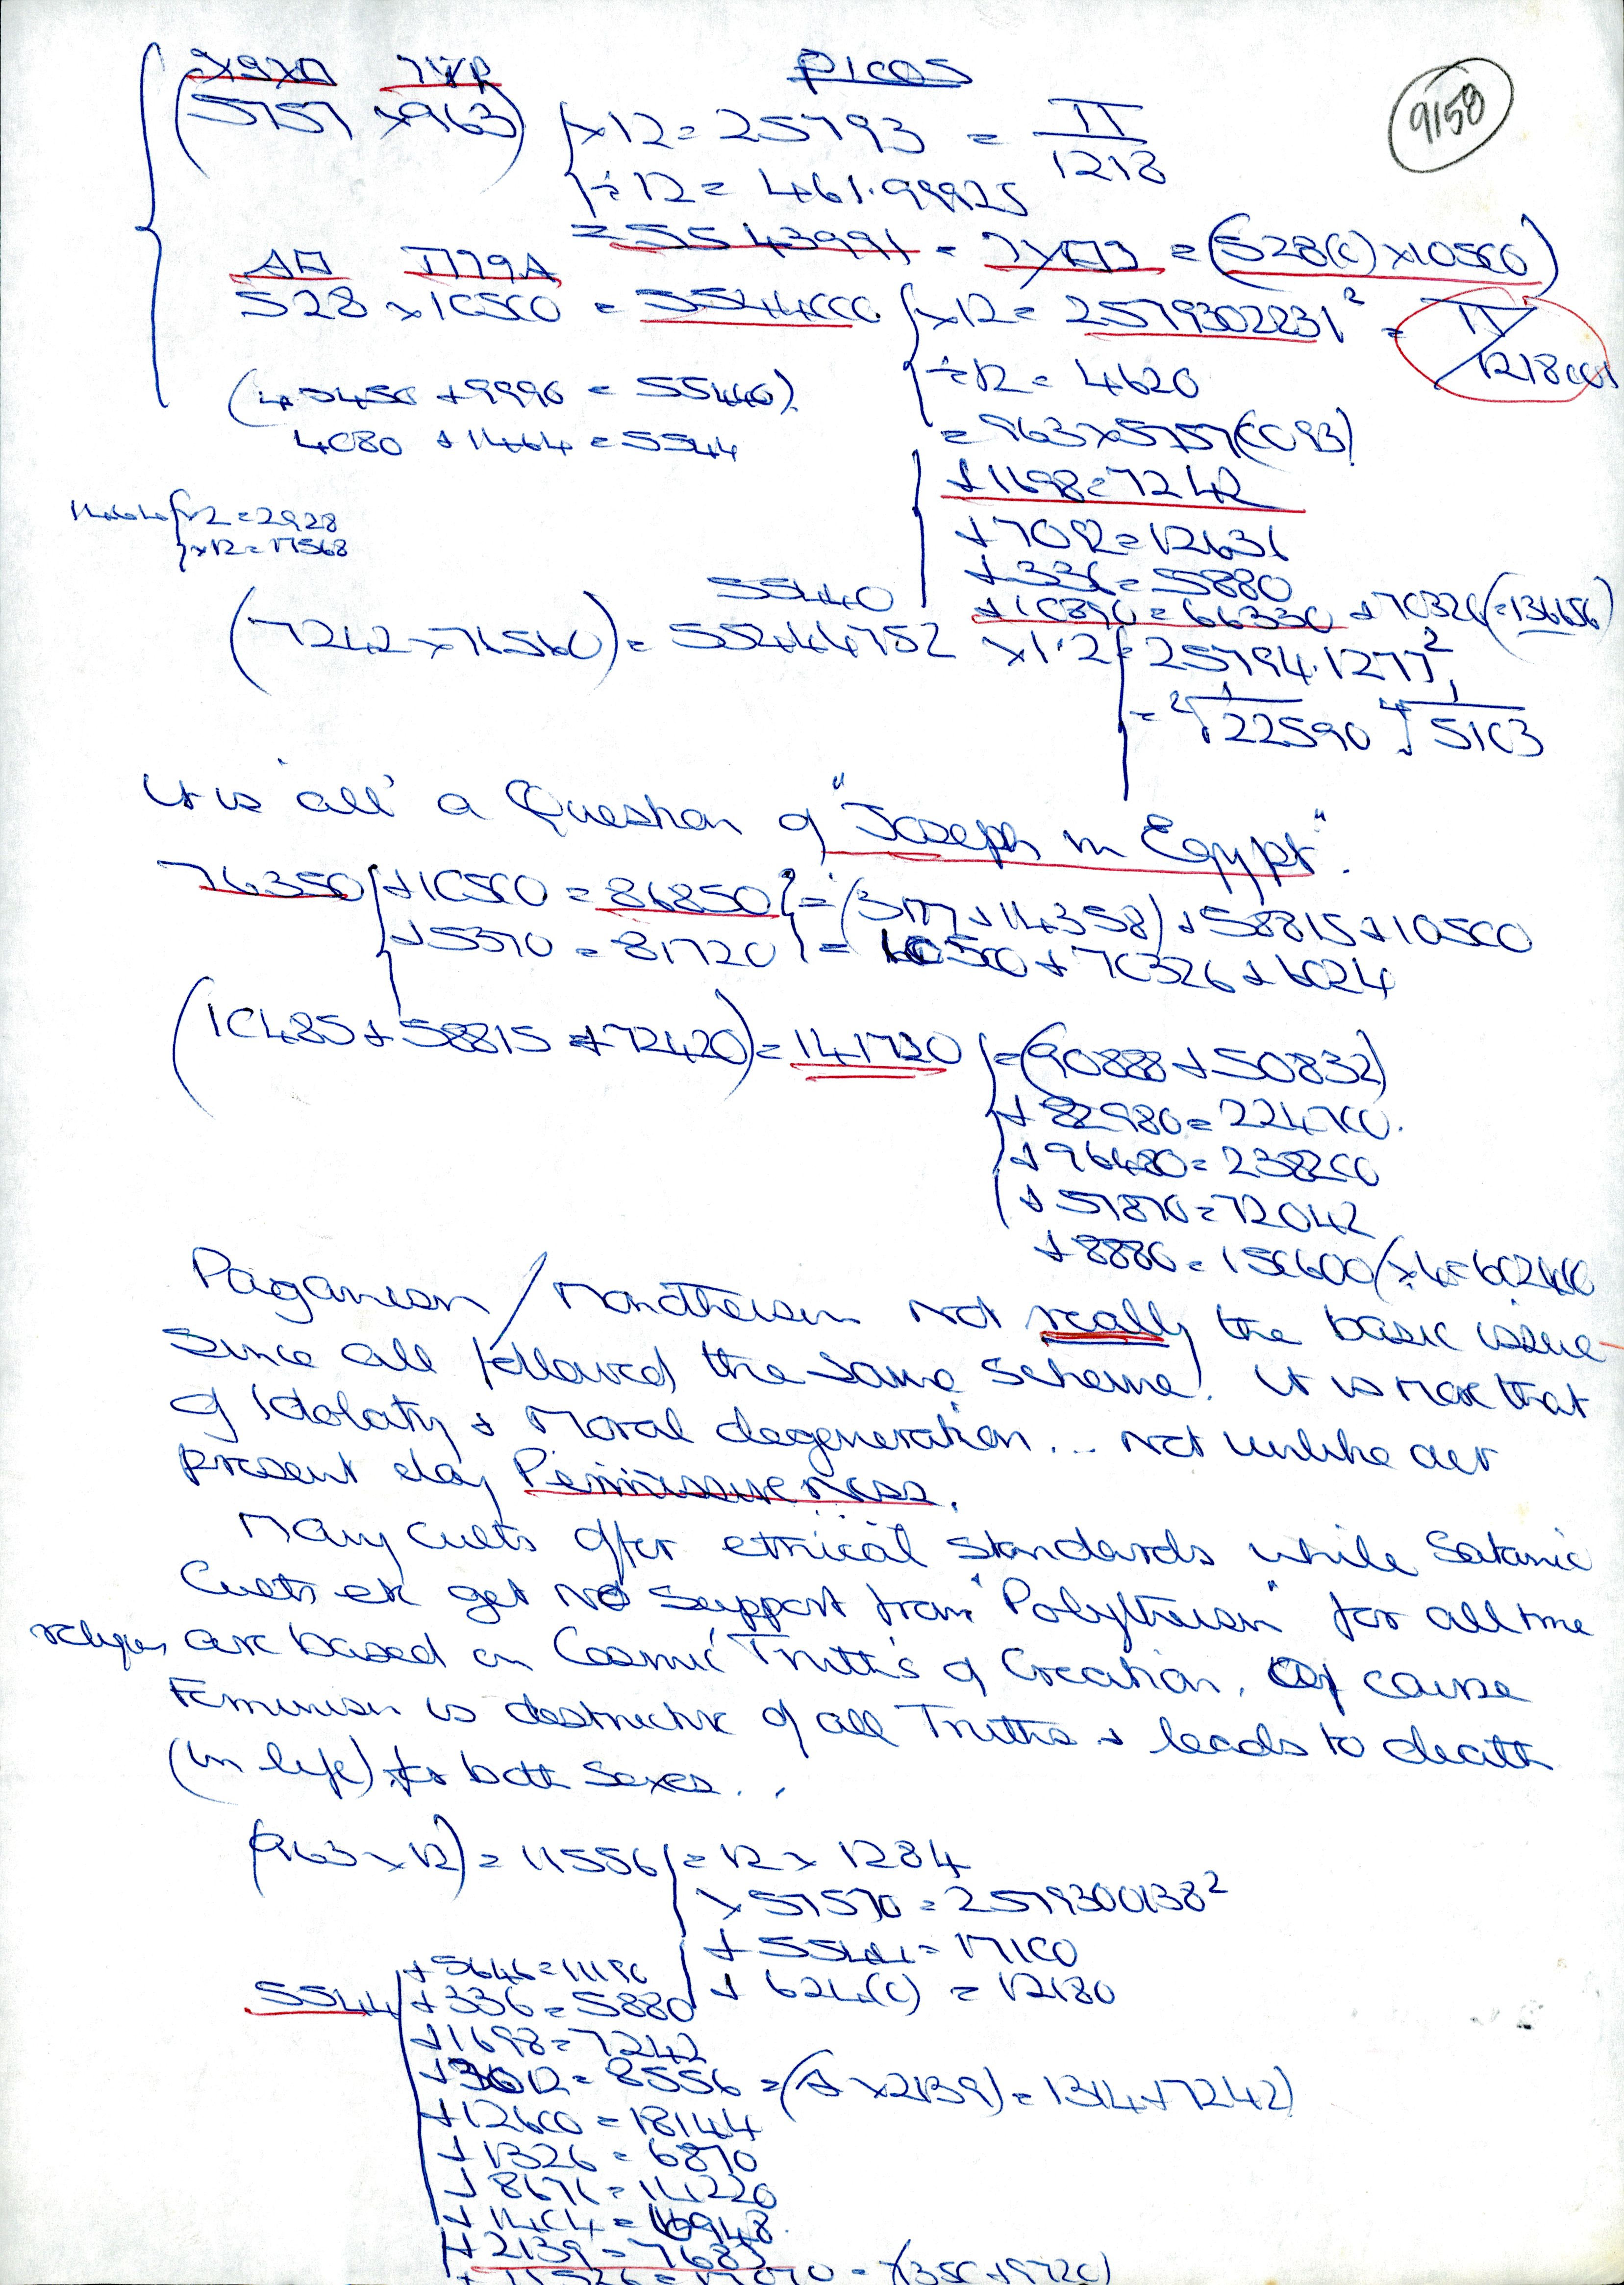 PICOS
9158
(5757 × 963) × 12 = 25793 = π / 1218
÷ 12 = 461.99925
= 5543991 = = (528(0) × 10500)
528 × 10500 = 5544000 × 12 = 2579302231² = π / 1218001
÷ 12 = 4620
(45450 + 9990 = 55440)
= 963 × 5757(0093)
4080 + 1464 = 5544
+ 1698 = 7242
+ 7092 = 12636
÷ 2 = 2928
× 12 = 17568
+ 336 = 5880
55440
+ 10890 = 66330 + 70326 (= 136656)
(7242 × 76560) = 55444752 × 1.2 = 25794.1277²
= ²√22590 ⁴√5103
It is 'all' a Question of "Joseph in Egypt".
76350 + 10500 = 86850 = (3177 + 14358) + 58815 + 10500
+ 5370 = 81720 = 10500 + 70326 + 6024
(10485 + 58815 + 72420) = 141720 = (90888 + 50832)
+ 82980 = 224700
+ 96480 = 238200
+ 57870 = 72042
+ 8880 = 150600 (× 4 = 602400
Paganism / Monotheism not really the basic issue
since all followed the same scheme. It is more that
of Idolatry & Moral degeneration... not unlike our
present day Permissiveness.
Many Cults offer ethical standards while Satanic
Cults etc get NO support from "Polytheism" for all true
religions are based on Cosmic Truths of Creation. Of course
Feminism is destructive of all Truths & leads to death
(in life) for both sexes...
(963 × 12) = 11556 = 12 × 1284
× 57570 = 2579300138²
+ 5544 = 17100
+ 624(0) = 12180
5544 + 5646 = 11190
+ 336 = 5880
+ 1698 = 7242
+ 3012 = 8556 = (4 × 2139) = 1314 + 7242)
+ 12600 = 18144
+ 1326 = 6870
+ 8676 = 14220
+ 11404 = 16948
+ 2139 = 7683